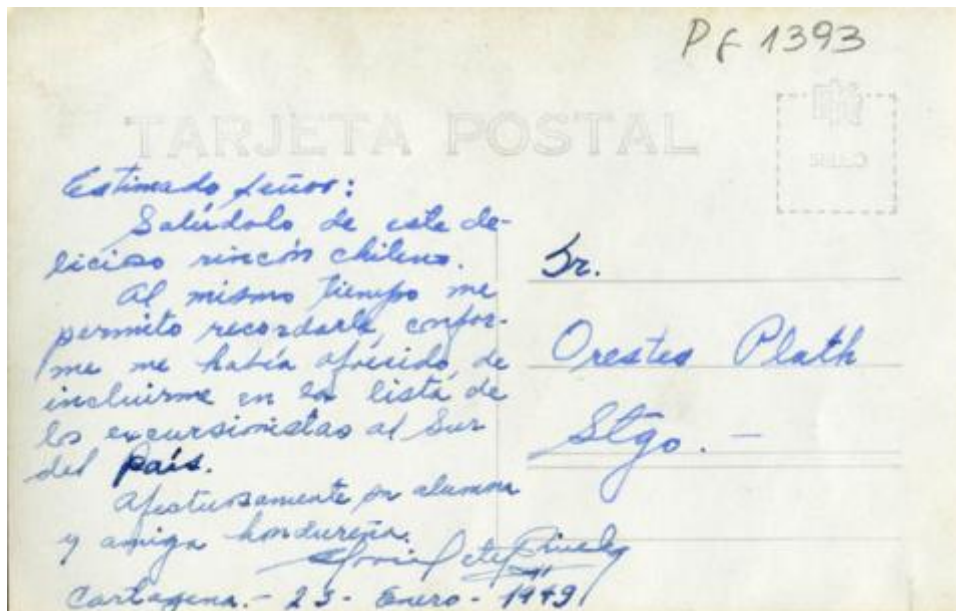 PF 1393
TARJETA POSTAL
Estimado Señor:
Salúdolo de este de-
licioso rincón chileno.
Al mismo tiempo me
permito recordarle, confor-
me me había ofrecido, de
incluirme en la lista de
los excursionistas al Sur
del país.
Afectuosamente su alumna
y amiga hondureña.
Cartagena.- 23- Enero - 1949
Sr.
Orestes Plath
Stgo. -